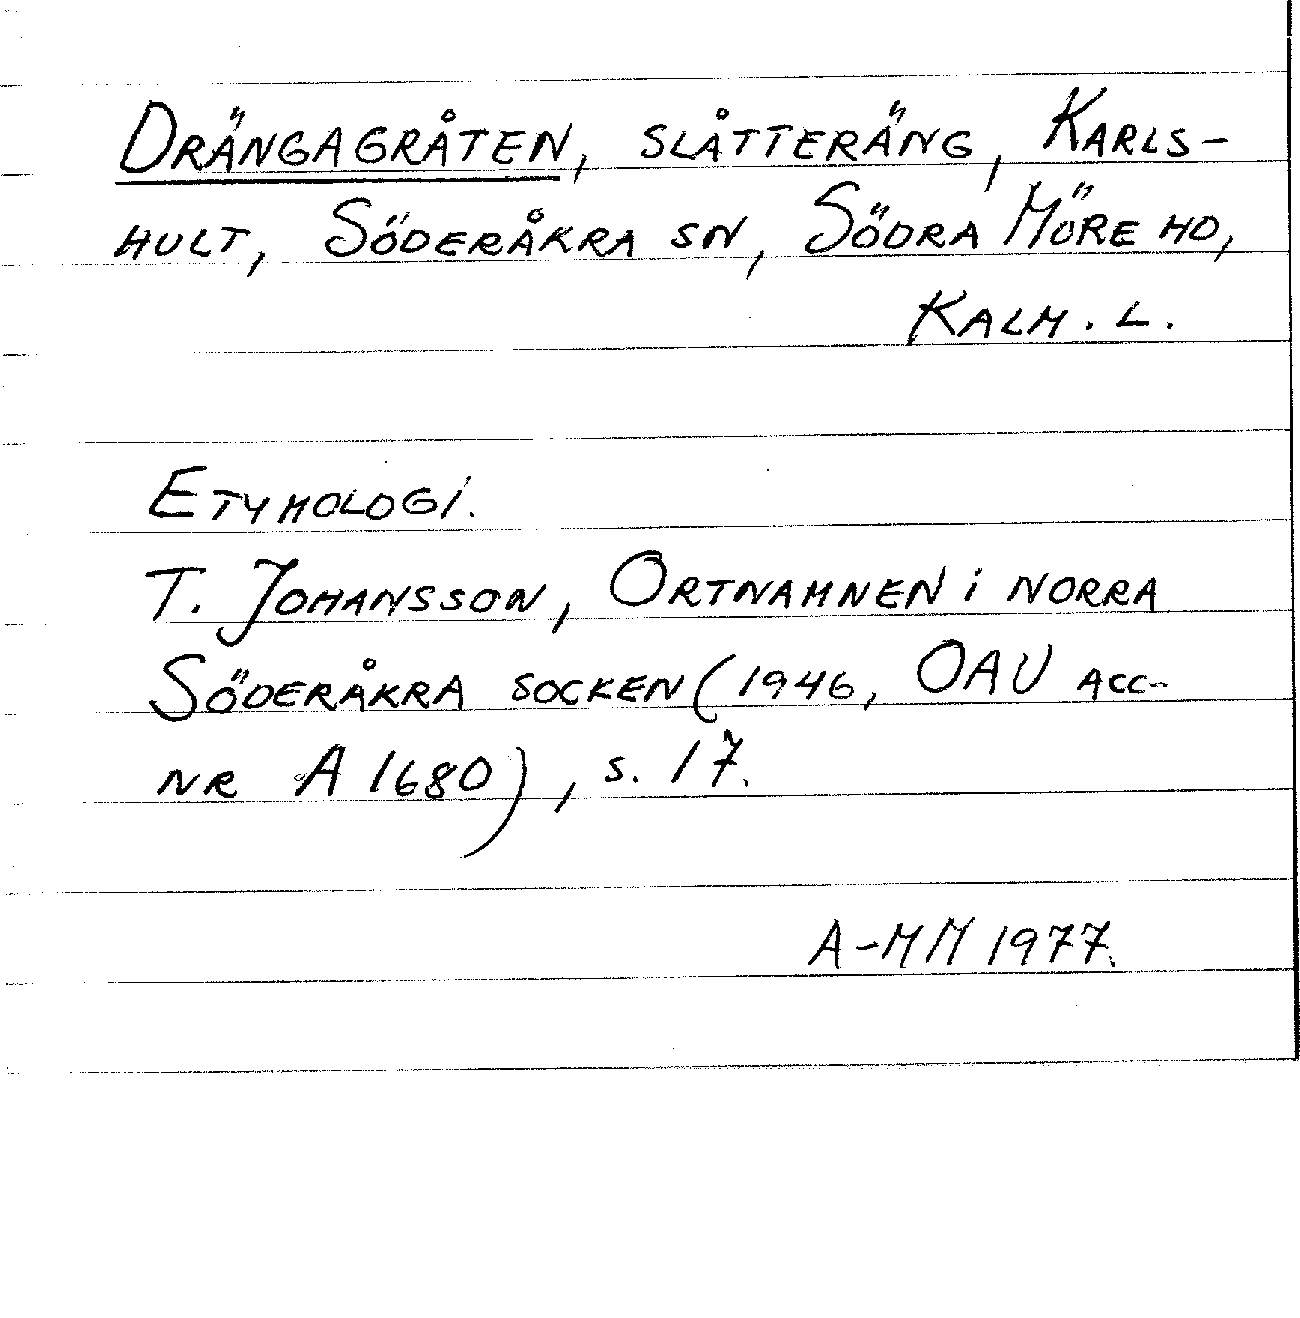 Drängagråten, slåtteräng, Karls-
hult, Söderåkra sn, Södra Möre hd,
Kalm. l.
Etymologi.
T. Johansson, Ortnamnen i norra
Söderåkra socken (1946, OAU acc-
nr A 1680), s. 17.
A-MM 1977.